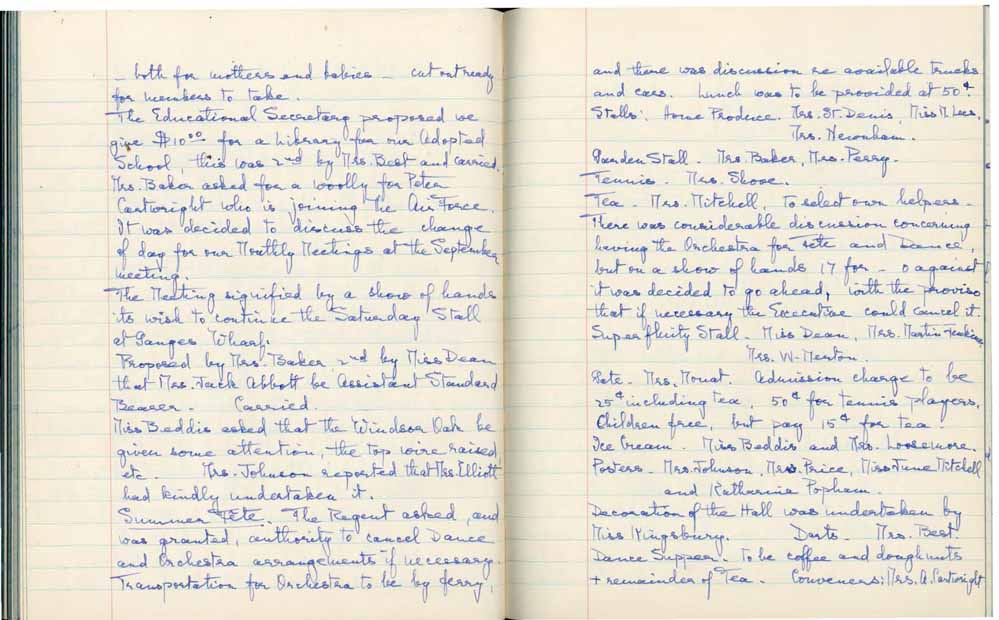 – both for mothers and babies – cut out ready
for members to take.
The Educational Secretary proposed we
give $10.00 for a Library for our Adopted
School, this was 2nd by Mrs. Best and carried.
Mrs. Baker asked for a woolly for Peter
Cartwright who is joining the Air Force.
It was decided to discuss the change
of day for our Monthly Meetings at the September
meeting.
The Meeting signified by a show of hands
its wish to continue the Saturday Stall
at Ganges Wharf.
Proposed by Mrs. Baker, 2nd by Miss Dean
that Mrs. Jack Abbott be Assistant Standard
Bearer – Carried.
Miss Beddis asked that the Windsor Oak be
given some attention, the top wire raised
etc. Mrs. Johnson reported that Mrs Elliott
had kindly undertaken it.
Summer Fête. The Regent asked, and
was granted, authority to cancel Dance
and Orchestra arrangements if necessary.
Transportation for Orchestra to be by ferry,
and there was discussion re available trucks
and cars. Lunch was to be provided at 50¢.
Stalls: Home Produce. Mrs. St. Denis, Miss M. Lees,
Mrs. Newnham.
Garden Stall – Mrs. Baker, Mrs. Perry.
Tennis. Mrs. Shove.
Tea – Mrs. Mitchell, to select own helpers –
There was considerable discussion concerning
having the Orchestra for fête and Dance,
but on a show of hands 17 for – 0 against
it was decided to go ahead, with the proviso
that if necessary the Executive could cancel it.
Superfluity Stall – Miss Dean, Mrs. Martin-Jenkins
Mrs. W-Merton.
Gate – Mrs. Mouat. Admission charge to be
25¢ including tea, 50¢ for tennis players,
Children free, but pay 15¢ for tea.
Ice Cream. Miss Beddis and Mrs. Loosemore.
Posters – Mrs. Johnson, Mrs. Price, Miss June Mitchell
and Katharine Popham.
Decoration of the Hall was undertaken by
Miss Kingsbury. Darts – Mrs. Best.
Dance Supper – To be coffee and doughnuts
+ remainder of Tea – Conveners: Mrs. A. Cartwright